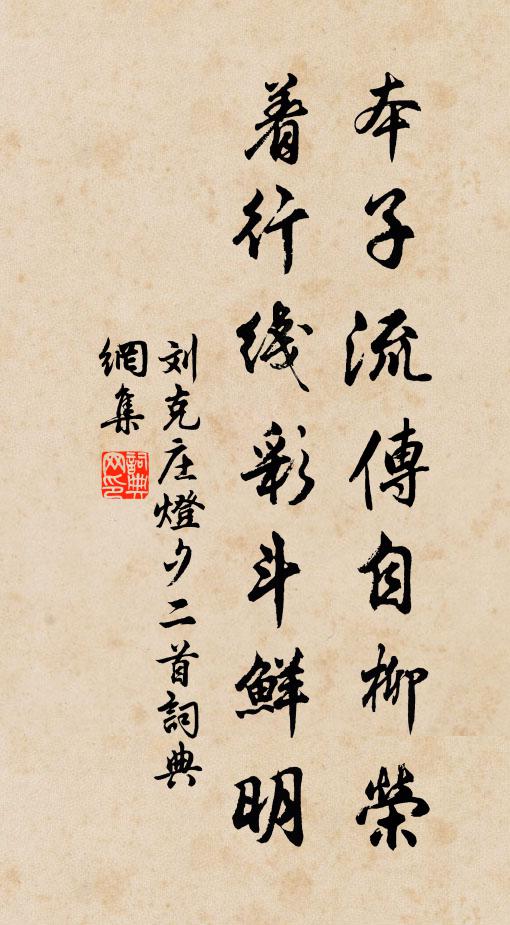 本子流傳自柳榮
着行线彩斗鮮明
刘克庄燈夕二首詞典
網集
詞典网印